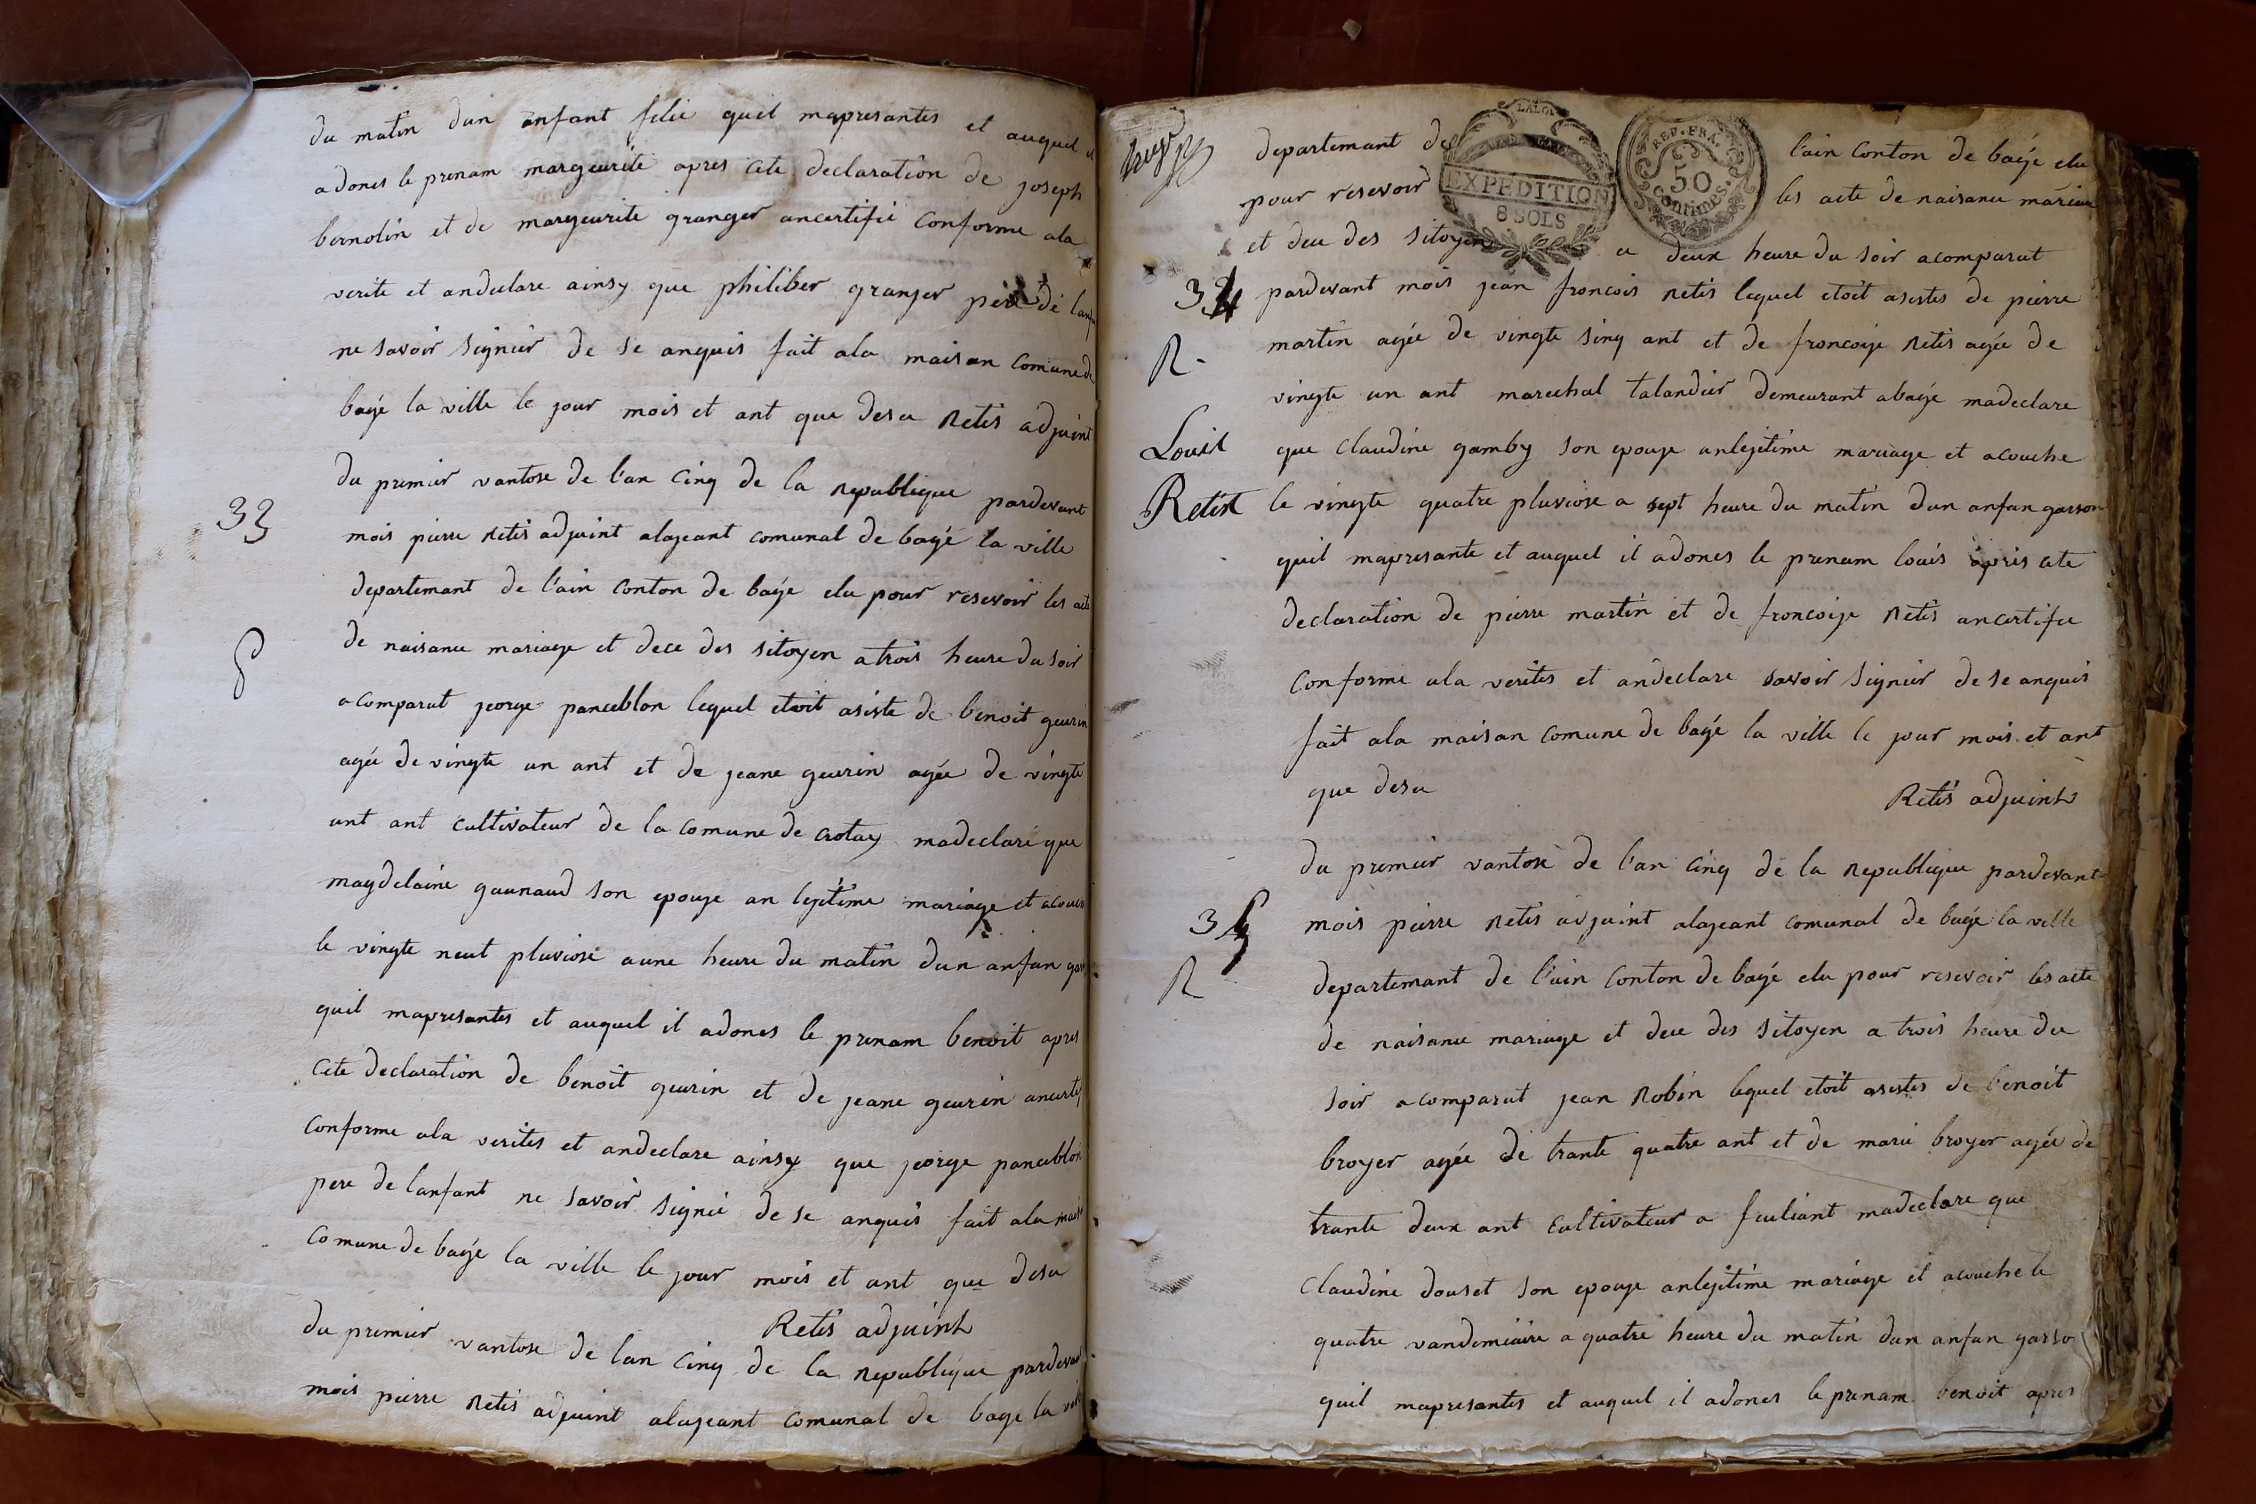 du matin dun anfant felie quil mapresantes et auquel il
adones le prenam margeurite apres cete declaration de joseph
bernolin et de margeurite granger ancertifie conforme ala
verite et andeclare ainsy que philiber granger pere de lanfan
ne savoir signier de se anquis fait ala maison comune de
bagé la ville le jour mois et ant que desu Retis adjuint
33
du premier vantose de l'an cinq de la republique pardevant
mois pierre Retis adjuint alageant comunal de bagé la ville
departemant de l'ain conton de bagé elu pour resevoir les acte
P
de naisance mariage et dece des sitoyen a trois heure du soir
acomparut jeorge panceblon lequel etoit asiste de benoit geurin
agée de vingte un ant et de jeane geurin agée de vingte
unt ant cultivateur de la comune de crotay madeclare que
magdelaine gaunaud son epouge an legitime mariage et acouche
le vingte neut pluviose aune heure du matin dun anfan gar
quil mapresantes et auquel il adones le prenam benoit apres
cete declaration de benoit geurin et de jeane geurin ancertif
conforme ala verites et andeclare ainsy que jeorge panceblon
pere de lanfant ne savoir signié de se anquis fait ala mais
comune de bagé la ville le jour mois et ant que desu
Retis adjuint
du premier vantose de lan cinq de la republique pardevan
mois pierre Retis adjuint alageant comunal de bage la vill
departemant de l'ain conton de bagé elu
pour resevoir les acte de naisance mariage
et dece des sitoyen a deux heure du soir acomparut
LALOI
EXPÉDITION
8 SOLS
REP. FRA.
50
Centimes.
34
pardevant mois jean froncois Retis lequel etoit asistes de pierre
R
martin agée de vingte sinq ant et de froncoige Retis agée de
vingte un ant marechal talandier demeurant abagé madeclare
Louis
que claudine gamby son epouge anlegitime mariage et acouche
Retis
le vingte quatre pluviose a sept heure du matin dun anfan garson
quil mapresante et auquel il adones le prenam louis apris cete
declaration de pierre martin et de froncoige Retis ancertifie
conforme ala verites et andeclare savoir signier de se anquis
fait ala maison comune de bagé la ville le jour mois et ant
que desu
Retis adjuint
du premier vantose de l'an cinq de la republique pardevant
35
mois pierre Retis adjuint alageant comunal de bagé la ville
R
departemant de l'ain conton de bagé elu pour resevoir les acte
de naisance mariage et dece des sitoyen a trois heure du
soir acomparut jean Robin lequel etoit asistes de benoit
broyer agée de trante quatre ant et de marie broyer agée de
trante deux ant cultivateur a feuliant madeclare que
claudine douset son epouge anlegitime mariage et acouche le
quatre vandemiaire a quatre heure du matin dun anfan garso
quil mapresantes et auquel il adones le prenam benoit apres